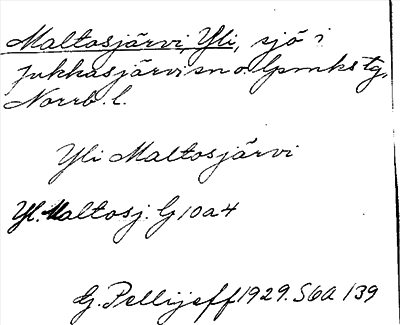 Maltosjärvi, Yli, sjö i
Jukkasjärvi sn o. lpmks tg,
Norrb. l.
Yli Maltosjärvi
Yl. Maltosj. G 10 a 4
G. Pellijeff 1929. S 6 a 139